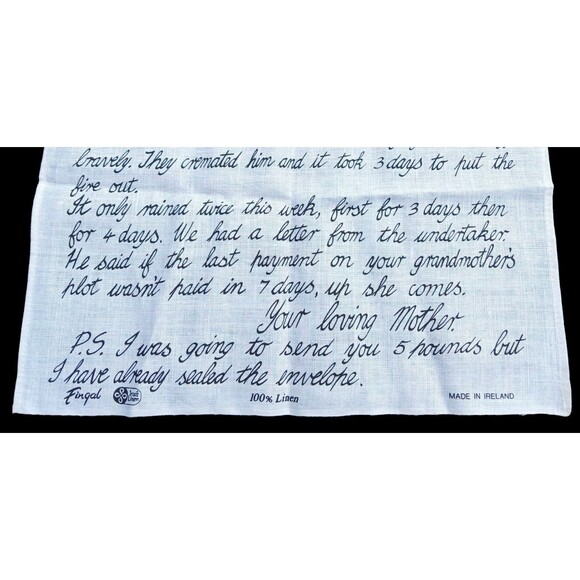 bravely. They cremated him and it took 3 days to put the
fire out.
It only rained twice this week, first for 3 days then
for 4 days. We had a letter from the undertaker.
He said if the last payment on your grandmother's
plot wasn't paid in 7 days, up she comes.
Your loving Mother.
P.S. I was going to send you 5 pounds but
I have already sealed the envelope.
Fingal Irish Linen 100% Linen MADE IN IRELAND